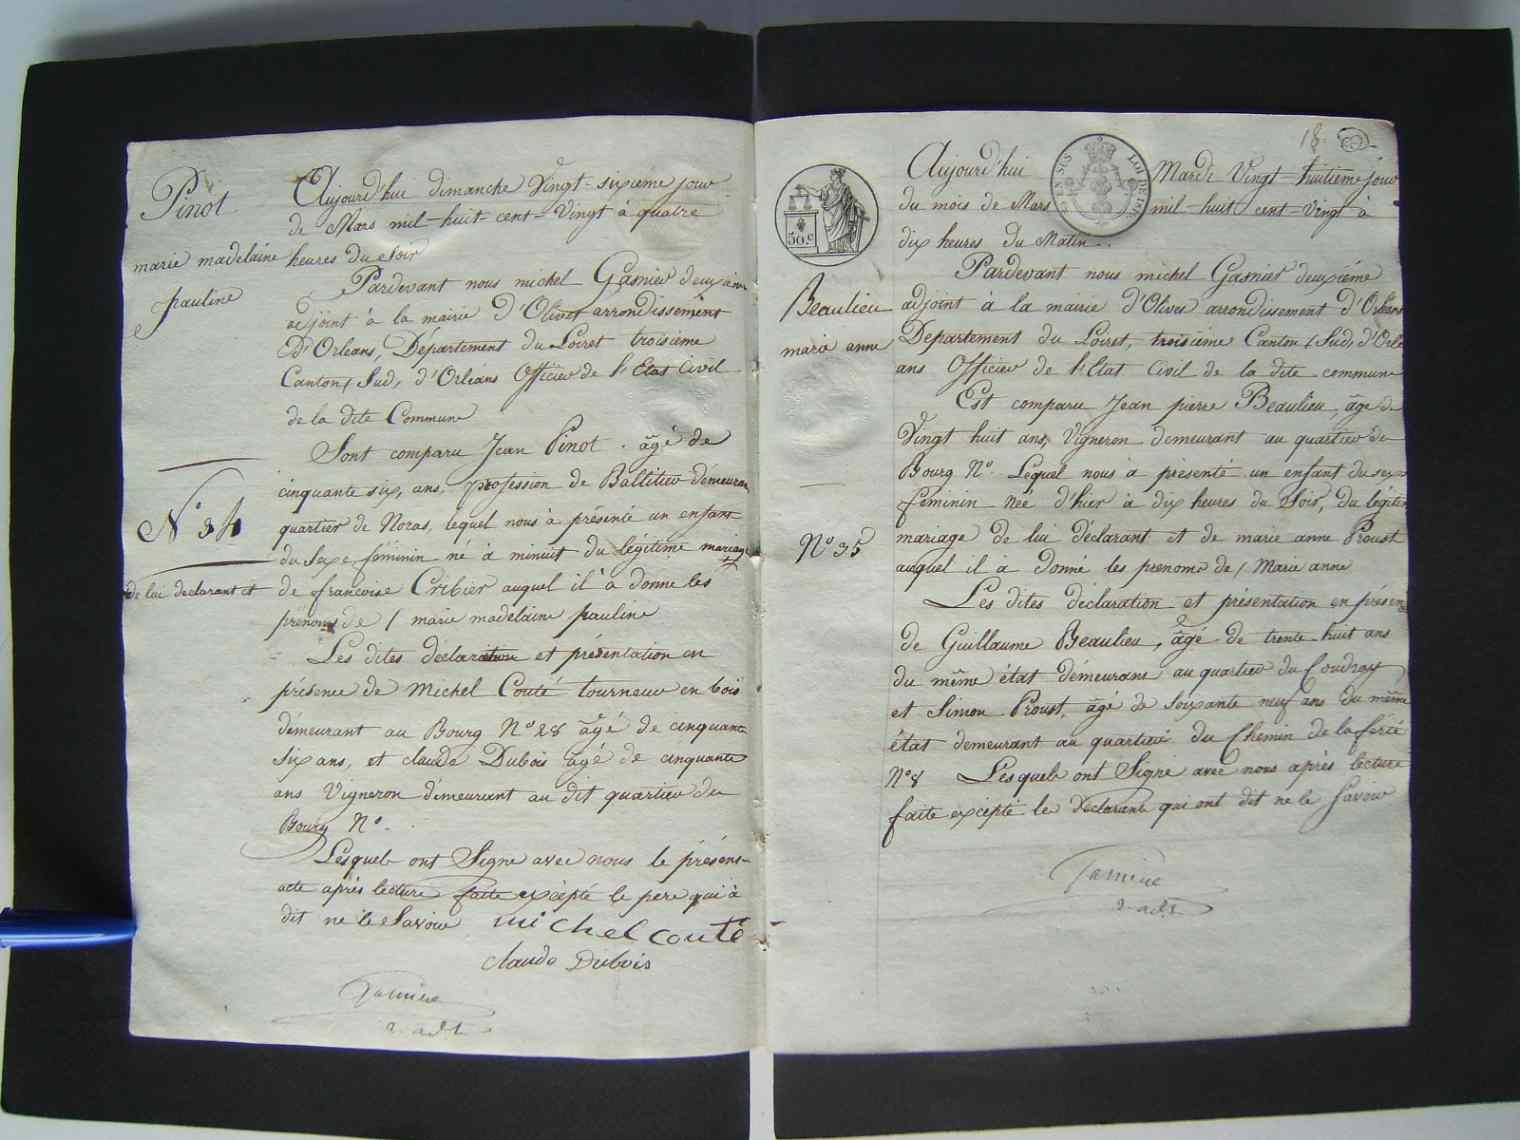 Pinot
marie madelaine
pauline
N° 34
de lui declarant et
Aujourd'hui dimanche Vingt-sixieme jour
de Mars mil-huit-cent-Vingt à quatre
heures du Soir
Pardevant nous michel Gasnier deuxieme
adjoint à la mairie D'Olivet arrondissement
D'Orleans, Département du Loiret troisieme
Canton, Sud, d'Orléans Officier de l'Etat Civil
de la Dite Commune
Sont comparu Jean Pinot. âgé de
cinquante six, ans, profession de Battieu démeurant
quartier de Noras, lequel nous à présenté un enfant
du Sexe féminin né à minuit du légitime mariage
de francoise Cribier auquel il à donne les
prenoms de / marie madelaine pauline
Les dites declaration et présentation en
présence de Michel Couté tourneur en bois
démeurant au Bourg N° 28 âgé de cinquante
Six ans, et claude Dubois âgé de cinquante
ans Vigneron démeurant au dit quartier du
Bourg N°.
Lesquels ont Signe avec nous le présent
acte après lecture faite excépté le pere qui à
dit ne le Savoir
michel couté
claude Dubois
2 adt
18.
50 c
EN SUS
LOI DE 1816
Beaulieu
marie anne
N° 35
Aujourd'hui Mardi Vingt-huitieme jour
du mois de Mars mil-huit cent-Vingt à
dix heures du Matin.
Pardevant nous michel Gasnier deuxiéme
adjoint à la mairie d'Olivet arrondissement d'Orléans
Departement du Loiret, troisiéme Canton (Sud) d'Orle
ans Officier de l'Etat Civil de la dite commune
Est comparu Jean pierre Beaulieu, âge de
Vingt huit ans, Vigneron demeurant au quartier du
Bourg N°. Lequel nous à présenté un enfant du sexe
féminin Née d'hier à dix heures du Soir, du légitime
mariage de lui déclarant et de marie anne Proust
auquel il à donné les prenoms de / Marie anne
Les dites déclaration et présentation en présence
de Guillaume Beaulieu, âgé de trente-huit ans
du même état démeurant au quartier du Coudray
et Simon Proust, âgé de soixante neuf ans du même
état demeurant au quartier du Chemin de la ferté
N° 8 Lesquels ont Signé avec nous après lecture
faite excépté le declarant qui ont dit ne le Savoir
2 adt